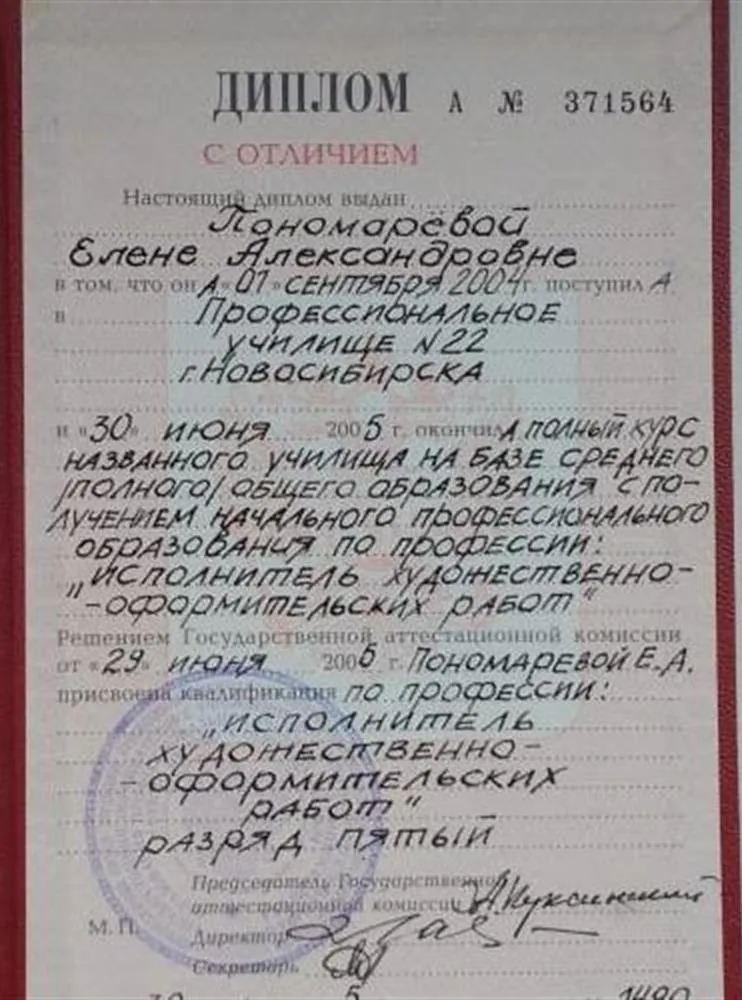 ДИПЛОМ А № 371564
С ОТЛИЧИЕМ
Настоящий диплом выдан
Пономарёвой
Елене Александровне
в том, что он А «01» СЕНТЯБРЯ 2004 г. поступил А
в ПРОФЕССИОНАЛЬНОЕ
УЧИЛИЩЕ N22
г. НОВОСИБИРСКА
и «30» ИЮНЯ 2005 г. окончил А ПОЛНЫЙ КУРС
НАЗВАННОГО УЧИЛИЩА НА БАЗЕ СРЕДНЕГО
/ПОЛНОГО/ ОБЩЕГО ОБРАЗОВАНИЯ С ПО-
ЛУЧЕНИЕМ НАЧАЛЬНОГО ПРОФЕССИОНАЛЬНОГО
ОБРАЗОВАНИЯ ПО ПРОФЕССИИ:
„ИСПОЛНИТЕЛЬ ХУДОЖЕСТВЕННО-
-ОФОРМИТЕЛЬСКИХ РАБОТ"
Решением Государственной аттестационной комиссии
от «29» ИЮНЯ 2005 г. ПОНОМАРЕВОЙ Е.А.
присвоена квалификация ПО ПРОФЕССИИ:
„ИСПОЛНИТЕЛЬ
ХУДОЖЕСТВЕННО-
-ОФОРМИТЕЛЬСКИХ
РАБОТ"
РАЗРЯД ПЯТЫЙ
Председатель Государственной
аттестационной комиссии
М. П. Директор
Секретарь